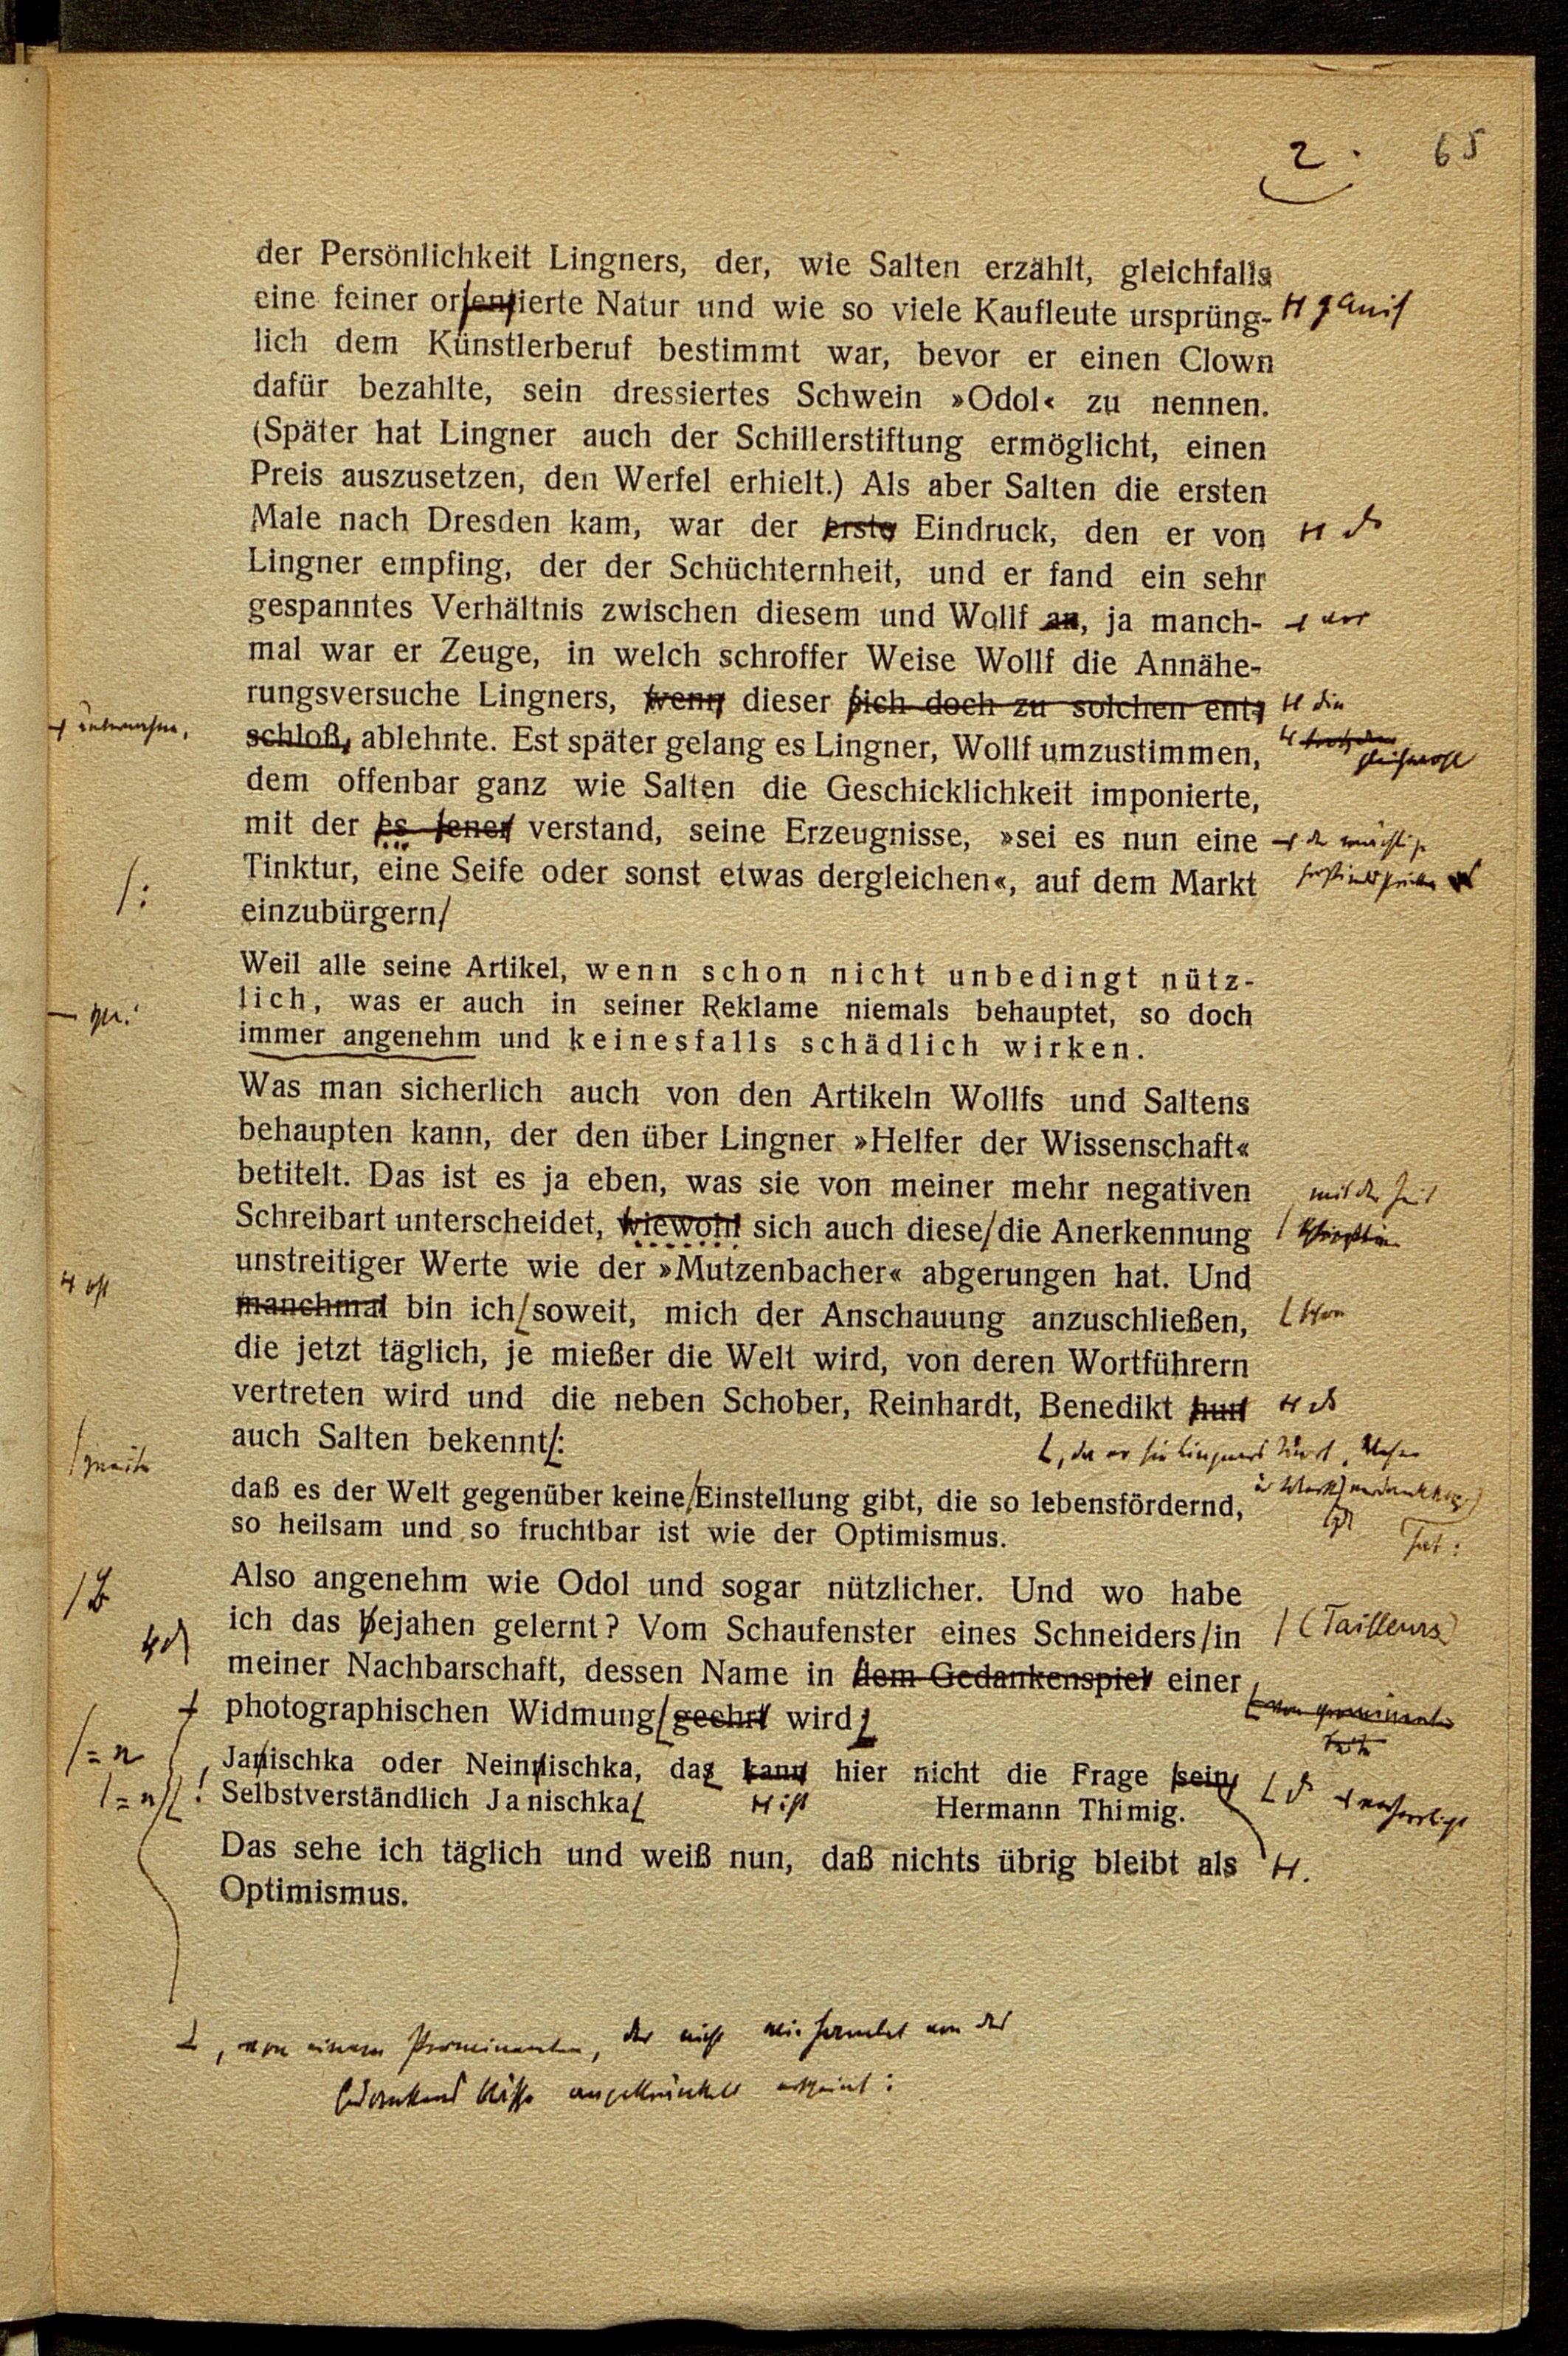 2. 65
der Persönlichkeit Lingners, der, wie Salten erzählt, gleichfalls
eine feiner orientierte Natur und wie so viele Kaufleute ursprüng-
lich dem Künstlerberuf bestimmt war, bevor er einen Clown
dafür bezahlte, sein dressiertes Schwein »Odol« zu nennen.
(Später hat Lingner auch der Schillerstiftung ermöglicht, einen
Preis auszusetzen, den Werfel erhielt.) Als aber Salten die ersten
Male nach Dresden kam, war der erste Eindruck, den er von
Lingner empfing, der der Schüchternheit, und er fand ein sehr
gespanntes Verhältnis zwischen diesem und Wollf an, ja manch- vor
mal war er Zeuge, in welch schroffer Weise Wollf die Annähe-
rungsversuche Lingners, wenn dieser sich doch zu solchen ent- die
unternahm,
schloß, ablehnte. Est später gelang es Lingner, Wollf umzustimmen, gleichwohl
dem offenbar ganz wie Salten die Geschicklichkeit imponierte,
mit der es jener verstand, seine Erzeugnisse, »sei es nun eine
Tinktur, eine Seife oder sonst etwas dergleichen«, auf dem Markt
/:
einzubürgern/
Weil alle seine Artikel, wenn schon nicht unbedingt nütz-
lich, was er auch in seiner Reklame niemals behauptet, so doch
immer angenehm und keinesfalls schädlich wirken.
Was man sicherlich auch von den Artikeln Wollfs und Saltens
behaupten kann, der den über Lingner »Helfer der Wissenschaft«
betitelt. Das ist es ja eben, was sie von meiner mehr negativen
mit der Zeit
Schreibart unterscheidet, wiewohl sich auch diese/die Anerkennung
unstreitiger Werte wie der »Mutzenbacher« abgerungen hat. Und
oft
manchmal bin ich soweit, mich der Anschauung anzuschließen, schon
die jetzt täglich, je mießer die Welt wird, von deren Wortführern
vertreten wird und die neben Schober, Reinhardt, Benedikt nun
auch Salten bekennt:
zweite
daß es der Welt gegenüber keine/Einstellung gibt, die so lebensfördernd,
hat:
so heilsam und so fruchtbar ist wie der Optimismus.
Also angenehm wie Odol und sogar nützlicher. Und wo habe
ich das bejahen gelernt? Vom Schaufenster eines Schneiders/in (Tailleurs)
meiner Nachbarschaft, dessen Name in dem Gedankenspiel einer
photographischen Widmung geehrt wird
/=n
Janischka oder Neinnischka, das kann hier nicht die Frage sein
/=n !
Selbstverständlich Janischka ist Hermann Thimig. verherrlicht
Das sehe ich täglich und weiß nun, daß nichts übrig bleibt als
Optimismus.
, von einem Prominenten, der nicht wie Hamlet von des
Gedankens Blässe angekränkelt erscheint: